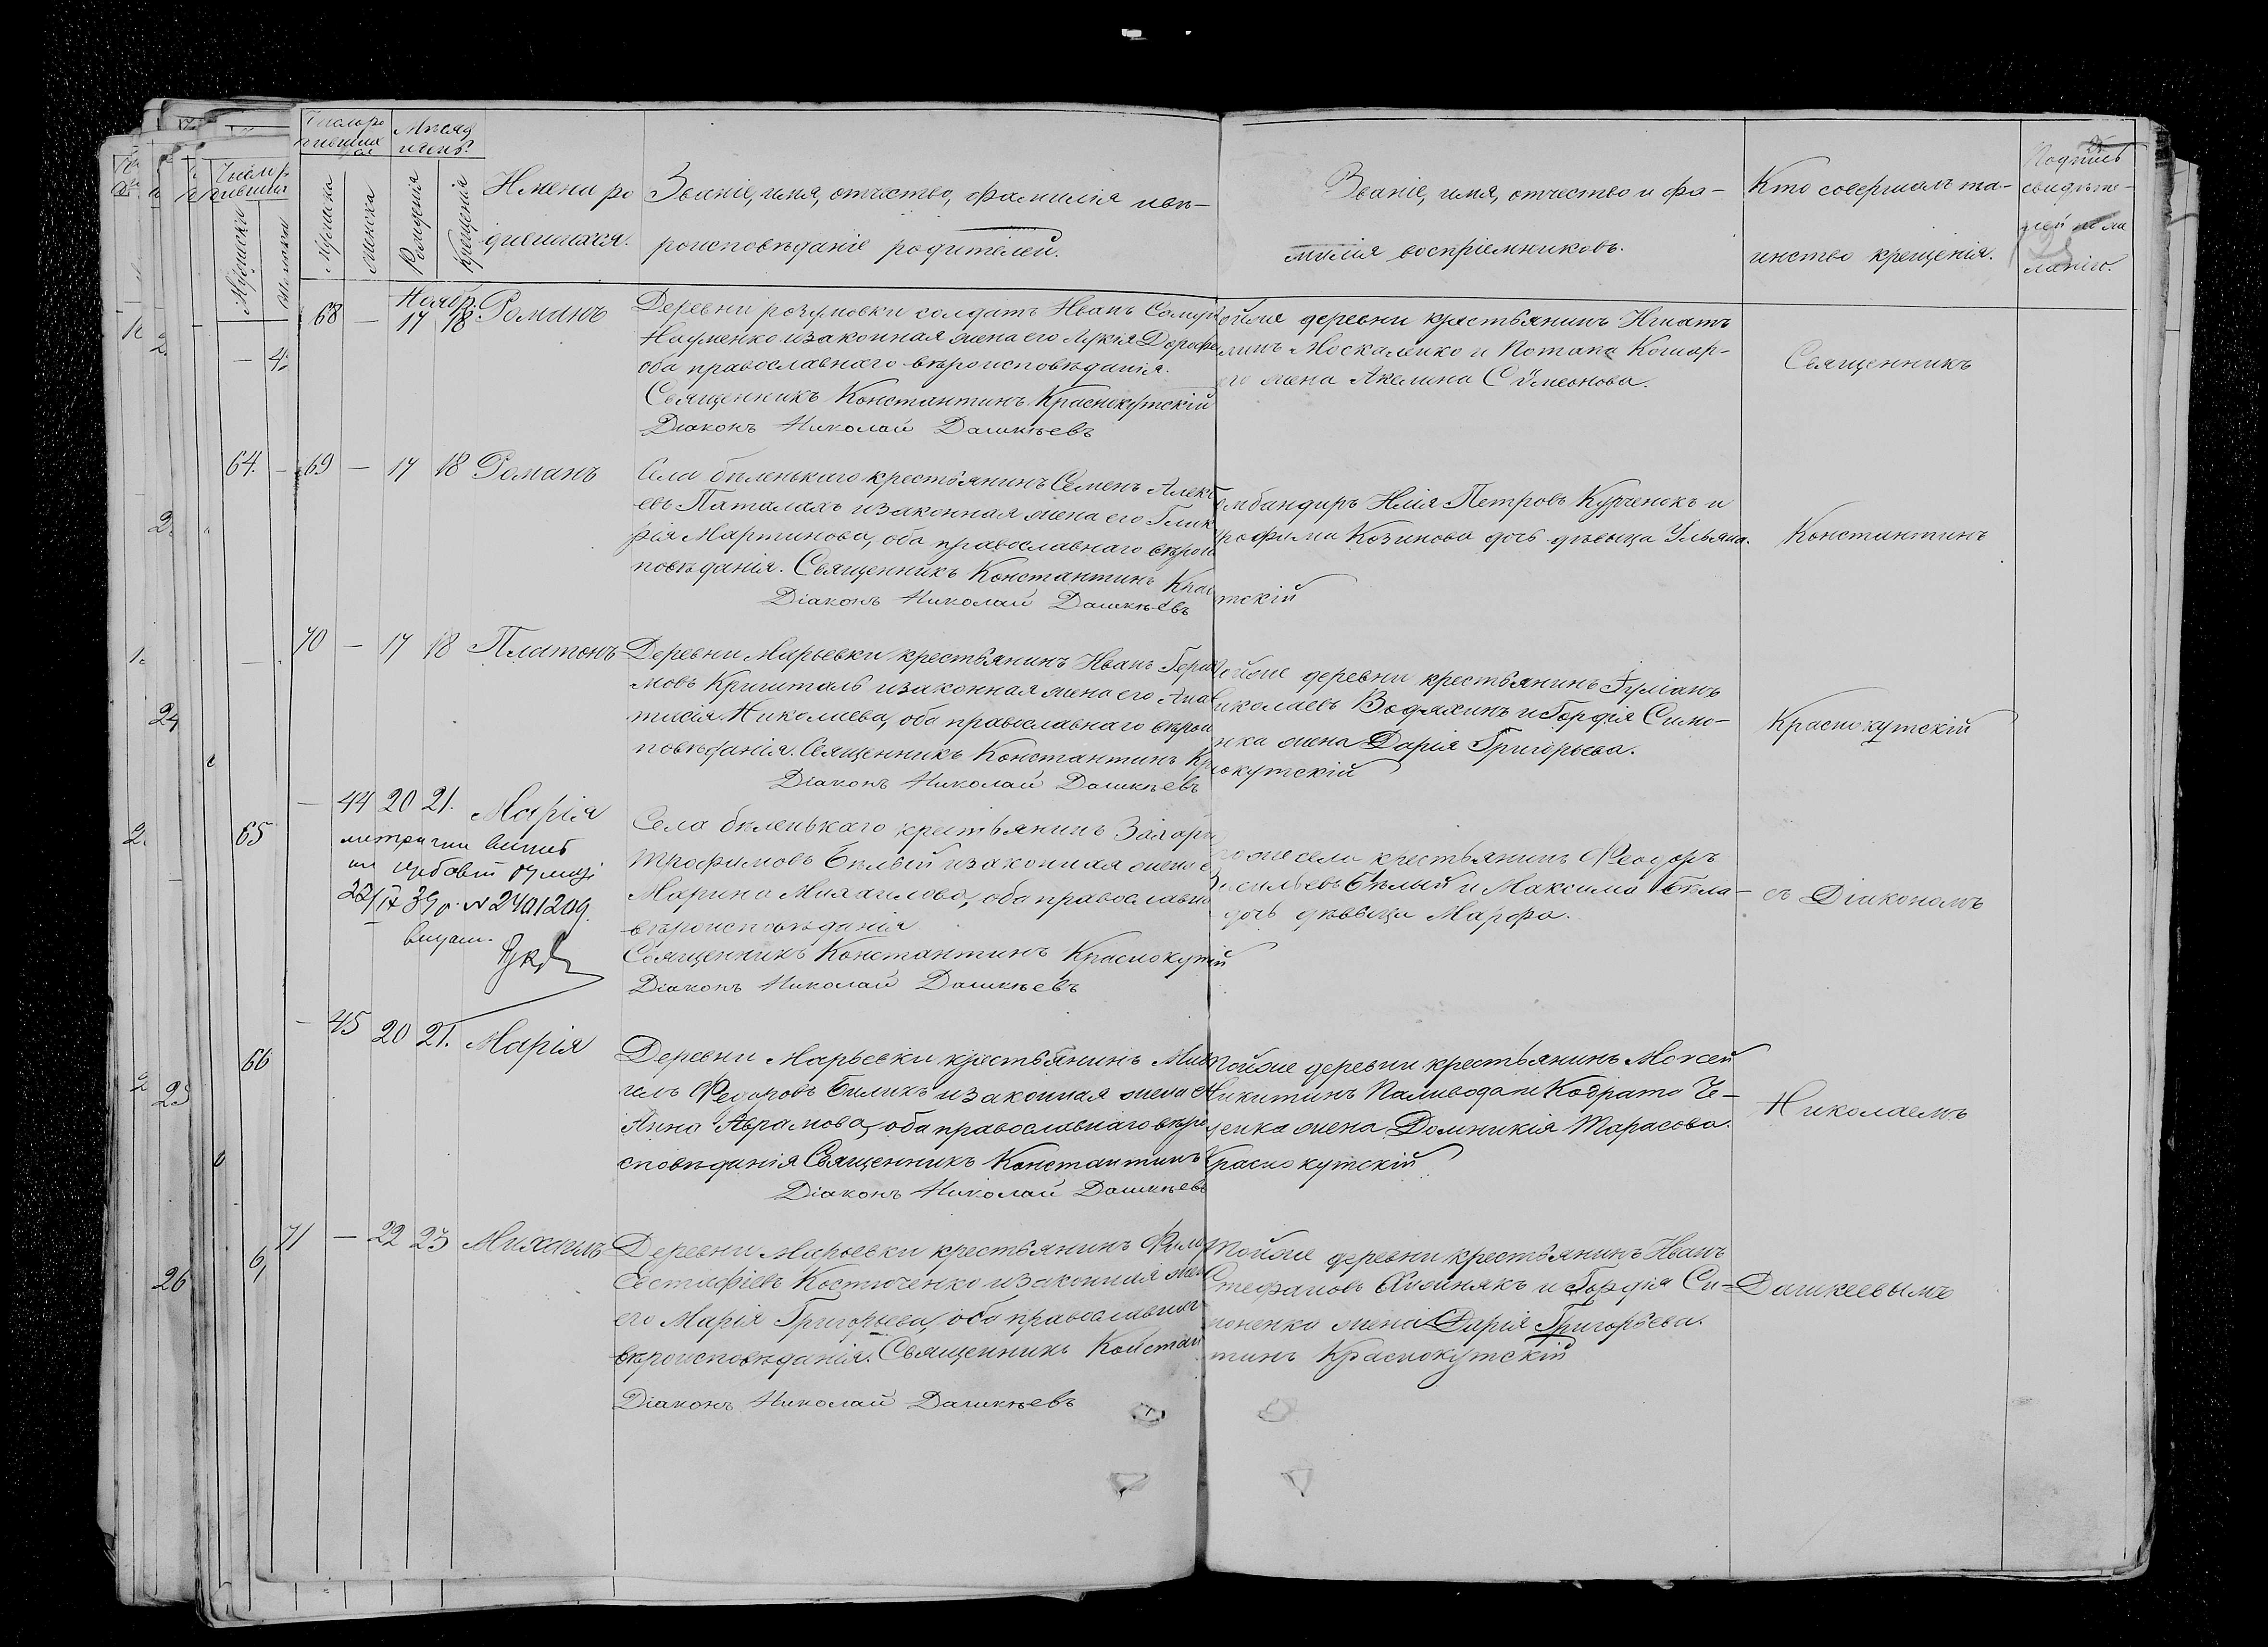 Число ро
дившихся
Мѣсяцъ
и день.
Мужеска
Женска
Рожденія
Крещенія
Имена ро
дившихся.
Званіе, имя, отчество, фамилія и вѣ-
роисповѣданіе родителей.
Званіе, имя, отчество и фа-
милія воспріемниковъ.
Кто совершалъ та-
инство крещенія.
Подпись
свидѣте-
лей
Ноябр.
68 — 17 18 Романъ
Деревни розумовки солдатъ Иванъ
Науменко и законная жена его Лукія Дорофе
оба православнаго вѣроисповѣданія.
Священникъ Константинъ Краснокутскій
Діаконъ Николай Дашкѣевъ
деревни крестьянинъ Игнатъ
Москаленко и Потапа Кошар-
его жена Акелина Сѵмеонова.
Священникъ
69 — 17 18 Романъ
Села бѣленькаго крестьянинъ Семенъ Алекс
евъ Паталахъ и законная жена его Глик
рія Мартинова, оба православнаго вѣроис
повѣданія. Священникъ Константинъ Крас
Діаконъ Николай Дашкѣевъ
Илія Петровъ Курченокъ и
Трофима Козинова дочь дѣвица Ульяна.
Константинъ
70 — 17 18 Платонъ
Деревни Марьевки крестьянинъ Иванъ Гера
мовъ Кришталь и законная жена его Анас
тасія Николаева, оба православнаго вѣроис
повѣданія. Священникъ Константинъ Кра
Діаконъ Николай Дашкѣевъ
деревни крестьянинъ Іуліанъ
Николаевъ Водяхинъ и Гордія Симо-
нка жена Дарія Григорьева.
снокутскій
Краснокутскій
— 44 20 21. Марія
22/IX 39 р. № 2401209.
видан.
Села бѣленькаго крестьянинъ Захарі
Трофимовъ Бѣлый и законная жена е
Марина Михаилова, оба православна
вѣроисповѣданія
Священникъ Константинъ Краснокутскій
Діаконъ Николай Дашкѣевъ
того же села крестьянинъ Феодоръ
Васильевъ Бѣлый и Максима Бѣла-
дочь дѣвица Марфа.
съ Діакономъ
— 45 20 21. Марія
Деревни Марьевки крестьянинъ Миха
илъ Феодоровъ Биликъ и законная жена е
Анна Аврамова, оба православнаго вѣро
сповѣданія Священникъ Константинъ
Діаконъ Николай Дашкѣевъ
Тойже деревни крестьянинъ Моисей
Никитинъ Паливода и Кодрата Че-
ренка жена Домникія Тарасова.
Краснокутскій
Николаемъ
71 — 22 23 Михаилъ
Деревни Марьевки крестьянинъ Фили
Евстафіевъ Костюченко и законная жен
его Марія Григорьева, оба православнаго
вѣроисповѣданія. Священникъ Констан
Діаконъ Николай Дашкѣевъ
Тойже деревни крестьянинъ Иванъ
Стефановъ Хижнякъ и Гордія Си-
моненка жена Дарія Григорьева.
тинъ Краснокутскій
Дашкеевымъ